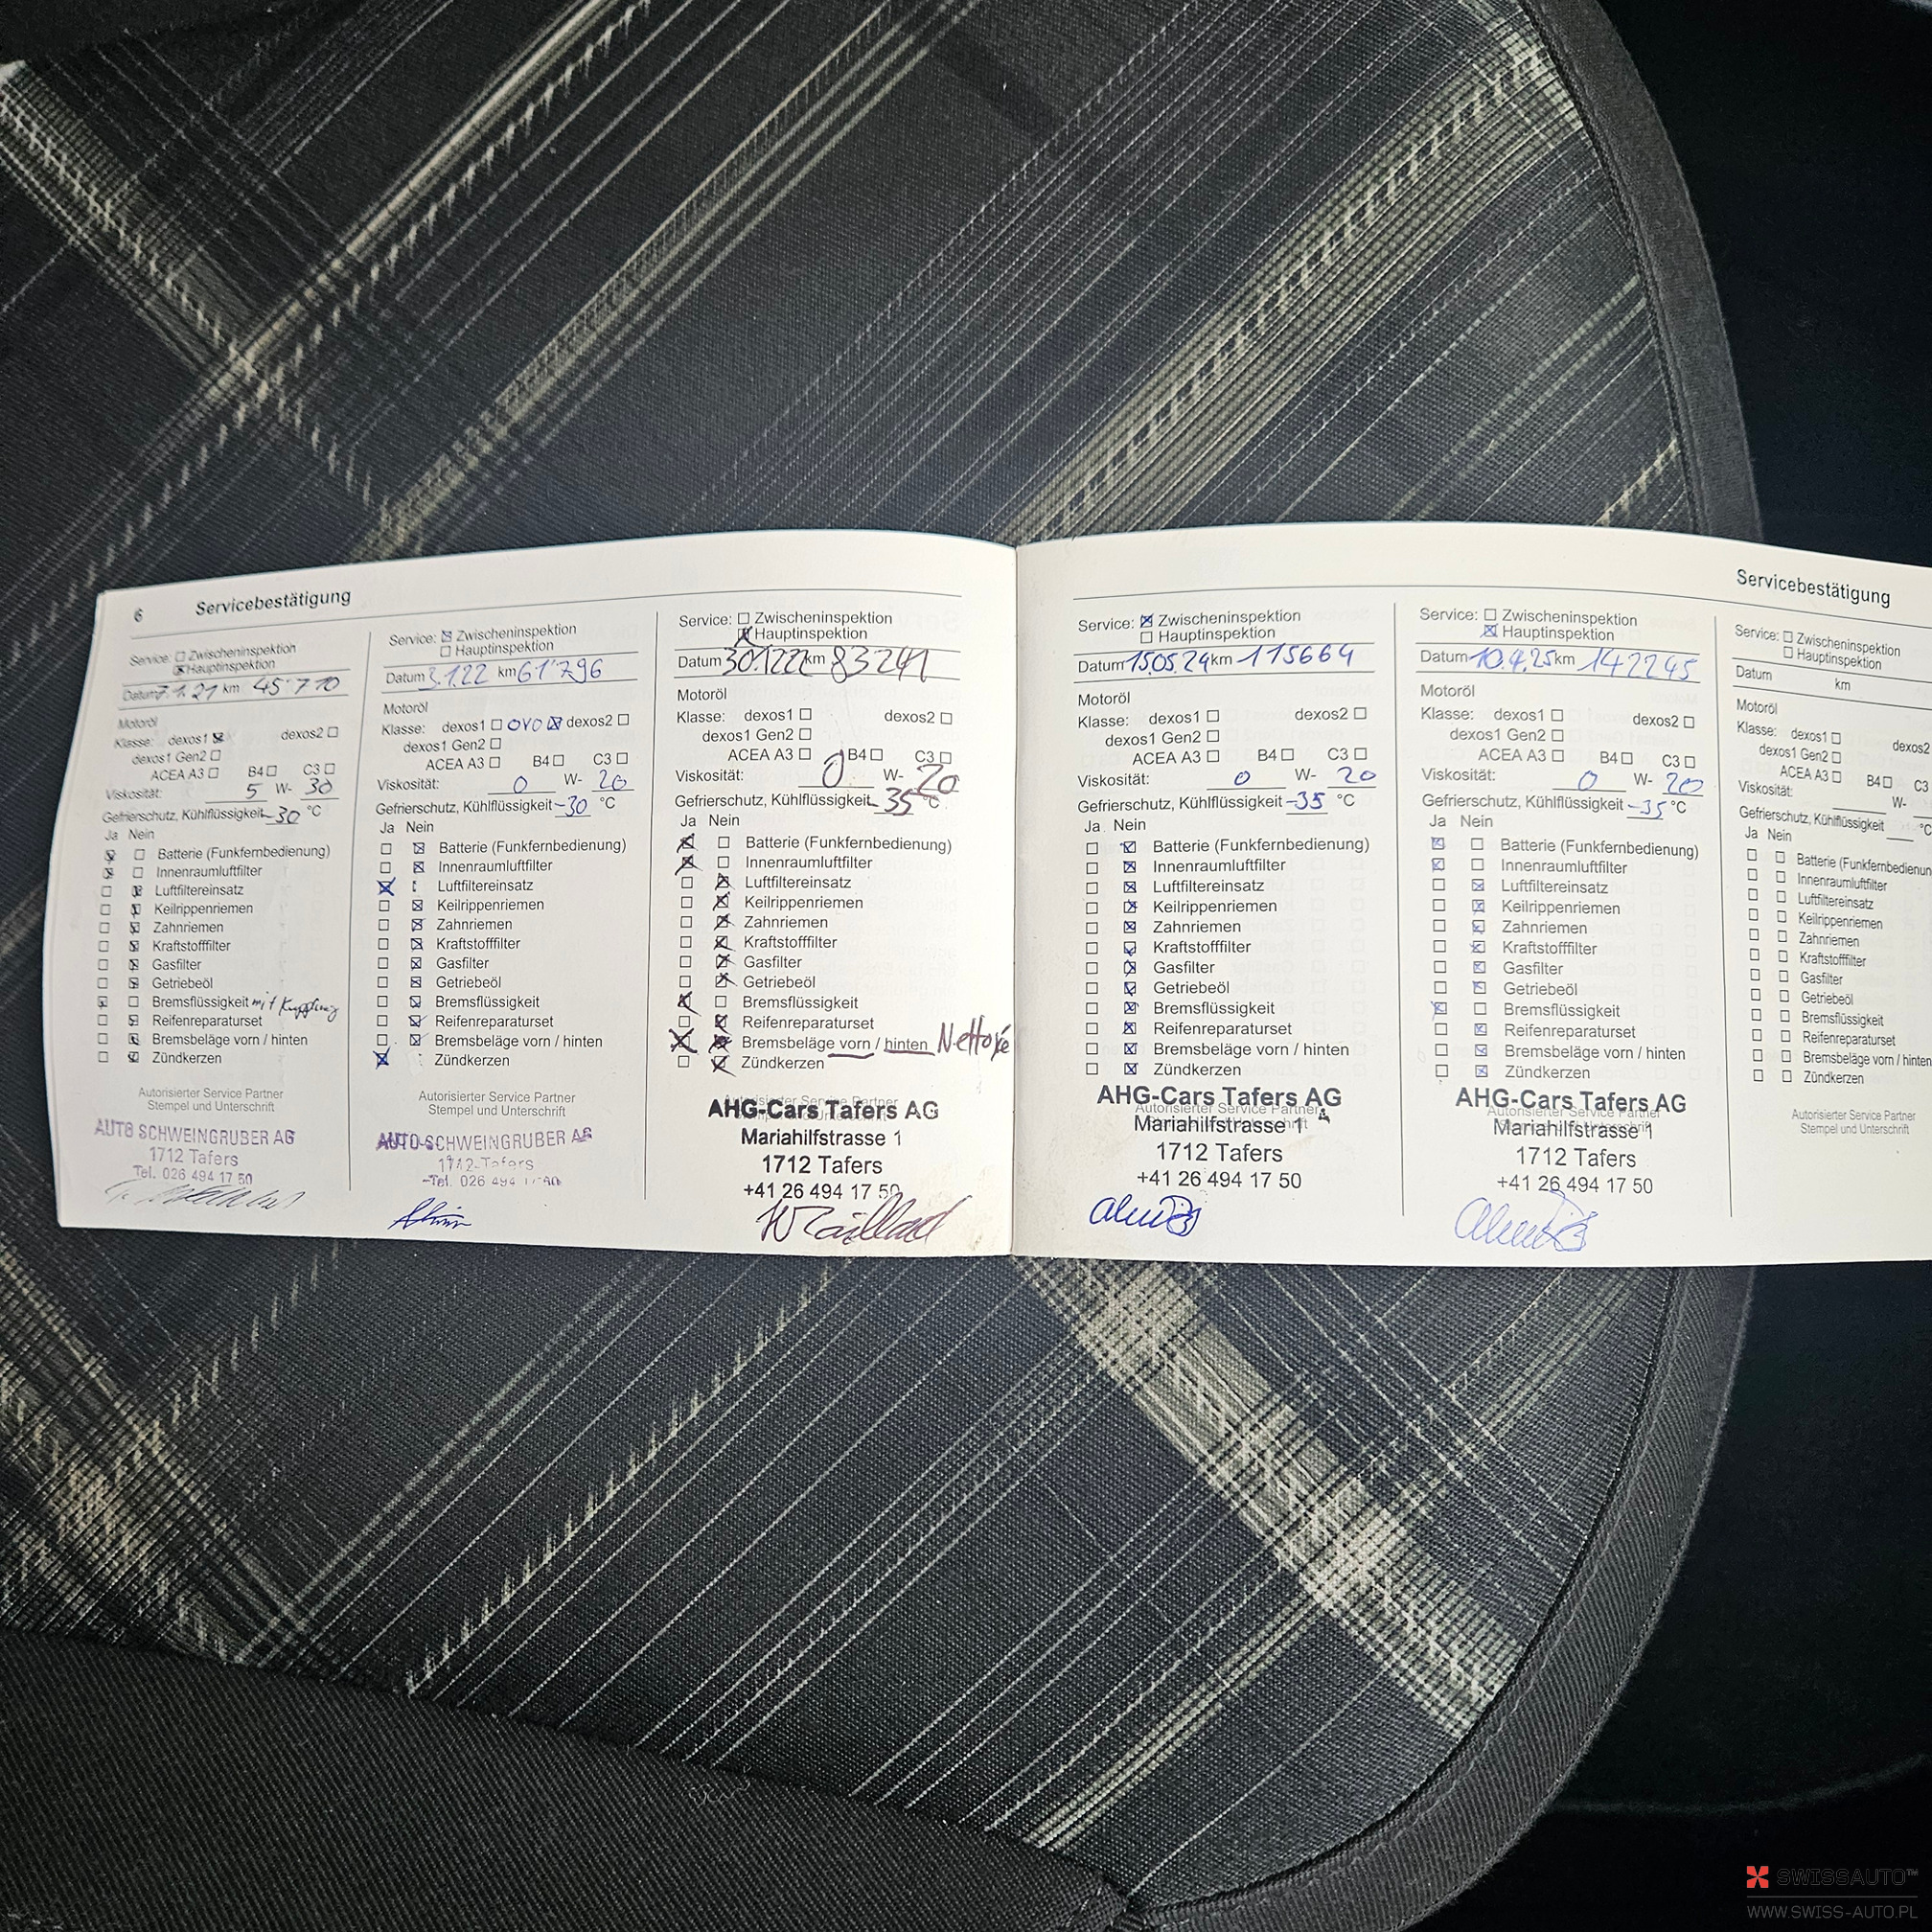 6 Servicebestätigung
Service: Zwischeninspektion
Hauptinspektion
Datum 7.1.21 km 45'710
Motoröl
Klasse: dexos1 dexos2
dexos1 Gen2
ACEA A3 B4 C3
Viskosität: 5 W- 30
Gefrierschutz, Kühlflüssigkeit -30 °C
Ja Nein
Batterie (Funkfernbedienung)
Innenraumluftfilter
Luftfiltereinsatz
Keilrippenriemen
Zahnriemen
Kraftstofffilter
Gasfilter
Getriebeöl
Bremsflüssigkeit mit Kupplung
Reifenreparaturset
Bremsbeläge vorn / hinten
Zündkerzen
Autorisierter Service Partner
Stempel und Unterschrift
AUTO SCHWEINGRUBER AG
1712 Tafers
Tel. 026 494 17 50
Service: Zwischeninspektion
Hauptinspektion
Datum 3.1.22 km 61'796
Motoröl
Klasse: dexos1 OVO dexos2
dexos1 Gen2
ACEA A3 B4 C3
Viskosität: 0 W- 20
Gefrierschutz, Kühlflüssigkeit -30 °C
Ja Nein
Batterie (Funkfernbedienung)
Innenraumluftfilter
Luftfiltereinsatz
Keilrippenriemen
Zahnriemen
Kraftstofffilter
Gasfilter
Getriebeöl
Bremsflüssigkeit
Reifenreparaturset
Bremsbeläge vorn / hinten
Zündkerzen
Autorisierter Service Partner
Stempel und Unterschrift
AUTO-SCHWEINGRUBER AG
1712 Tafers
Tel. 026 494 17 50
Service: Zwischeninspektion
Hauptinspektion
Datum 30.12.22 km 83241
Motoröl
Klasse: dexos1 dexos2
dexos1 Gen2
ACEA A3 B4 C3
Viskosität: 0 W- 20
Gefrierschutz, Kühlflüssigkeit -35 °C
Ja Nein
Batterie (Funkfernbedienung)
Innenraumluftfilter
Luftfiltereinsatz
Keilrippenriemen
Zahnriemen
Kraftstofffilter
Gasfilter
Getriebeöl
Bremsflüssigkeit
Reifenreparaturset
Bremsbeläge vorn / hinten Nettoyé
Zündkerzen
Autorisierter Service Partner
AHG-Cars Tafers AG
Mariahilfstrasse 1
1712 Tafers
+41 26 494 17 50
Servicebestätigung
Service: Zwischeninspektion
Hauptinspektion
Datum 15.05.24 km 115664
Motoröl
Klasse: dexos1 dexos2
dexos1 Gen2
ACEA A3 B4 C3
Viskosität: 0 W- 20
Gefrierschutz, Kühlflüssigkeit -35 °C
Ja Nein
Batterie (Funkfernbedienung)
Innenraumluftfilter
Luftfiltereinsatz
Keilrippenriemen
Zahnriemen
Kraftstofffilter
Gasfilter
Getriebeöl
Bremsflüssigkeit
Reifenreparaturset
Bremsbeläge vorn / hinten
Zündkerzen
AHG-Cars Tafers AG
Autorisierter Service Partner
Mariahilfstrasse 1
1712 Tafers
+41 26 494 17 50
Service: Zwischeninspektion
Hauptinspektion
Datum 10.4.25 km 142245
Motoröl
Klasse: dexos1 dexos2
dexos1 Gen2
ACEA A3 B4 C3
Viskosität: 0 W- 20
Gefrierschutz, Kühlflüssigkeit -35 °C
Ja Nein
Batterie (Funkfernbedienung)
Innenraumluftfilter
Luftfiltereinsatz
Keilrippenriemen
Zahnriemen
Kraftstofffilter
Gasfilter
Getriebeöl
Bremsflüssigkeit
Reifenreparaturset
Bremsbeläge vorn / hinten
Zündkerzen
AHG-Cars Tafers AG
Autorisierter Service Partner
Mariahilfstrasse 1
1712 Tafers
+41 26 494 17 50
Service: Zwischeninspektion
Hauptinspektion
Datum km
Motoröl
Klasse: dexos1 dexos2
dexos1 Gen2
ACEA A3 B4 C3
Viskosität: W-
Gefrierschutz, Kühlflüssigkeit °C
Ja Nein
Batterie (Funkfernbedienun
Innenraumluftfilter
Luftfiltereinsatz
Keilrippenriemen
Zahnriemen
Kraftstofffilter
Gasfilter
Getriebeöl
Bremsflüssigkeit
Reifenreparaturset
Bremsbeläge vorn / hinten
Zündkerzen
Autorisierter Service Partner
Stempel und Unterschrift
SWISSAUTO™
WWW.SWISS-AUTO.PL